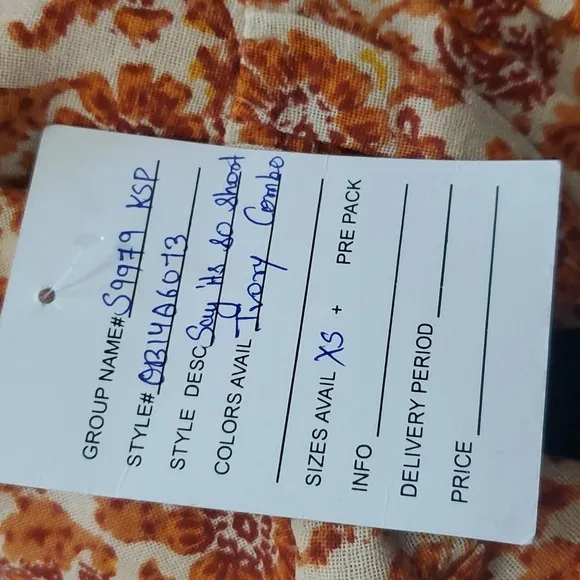 GROUP NAME# S9979 KSP
STYLE# OB14A6073
STYLE DESC Say its so short
COLORS AVAIL - Ivory Combo
SIZES AVAIL XS + PRE PACK
INFO
DELIVERY PERIOD
PRICE